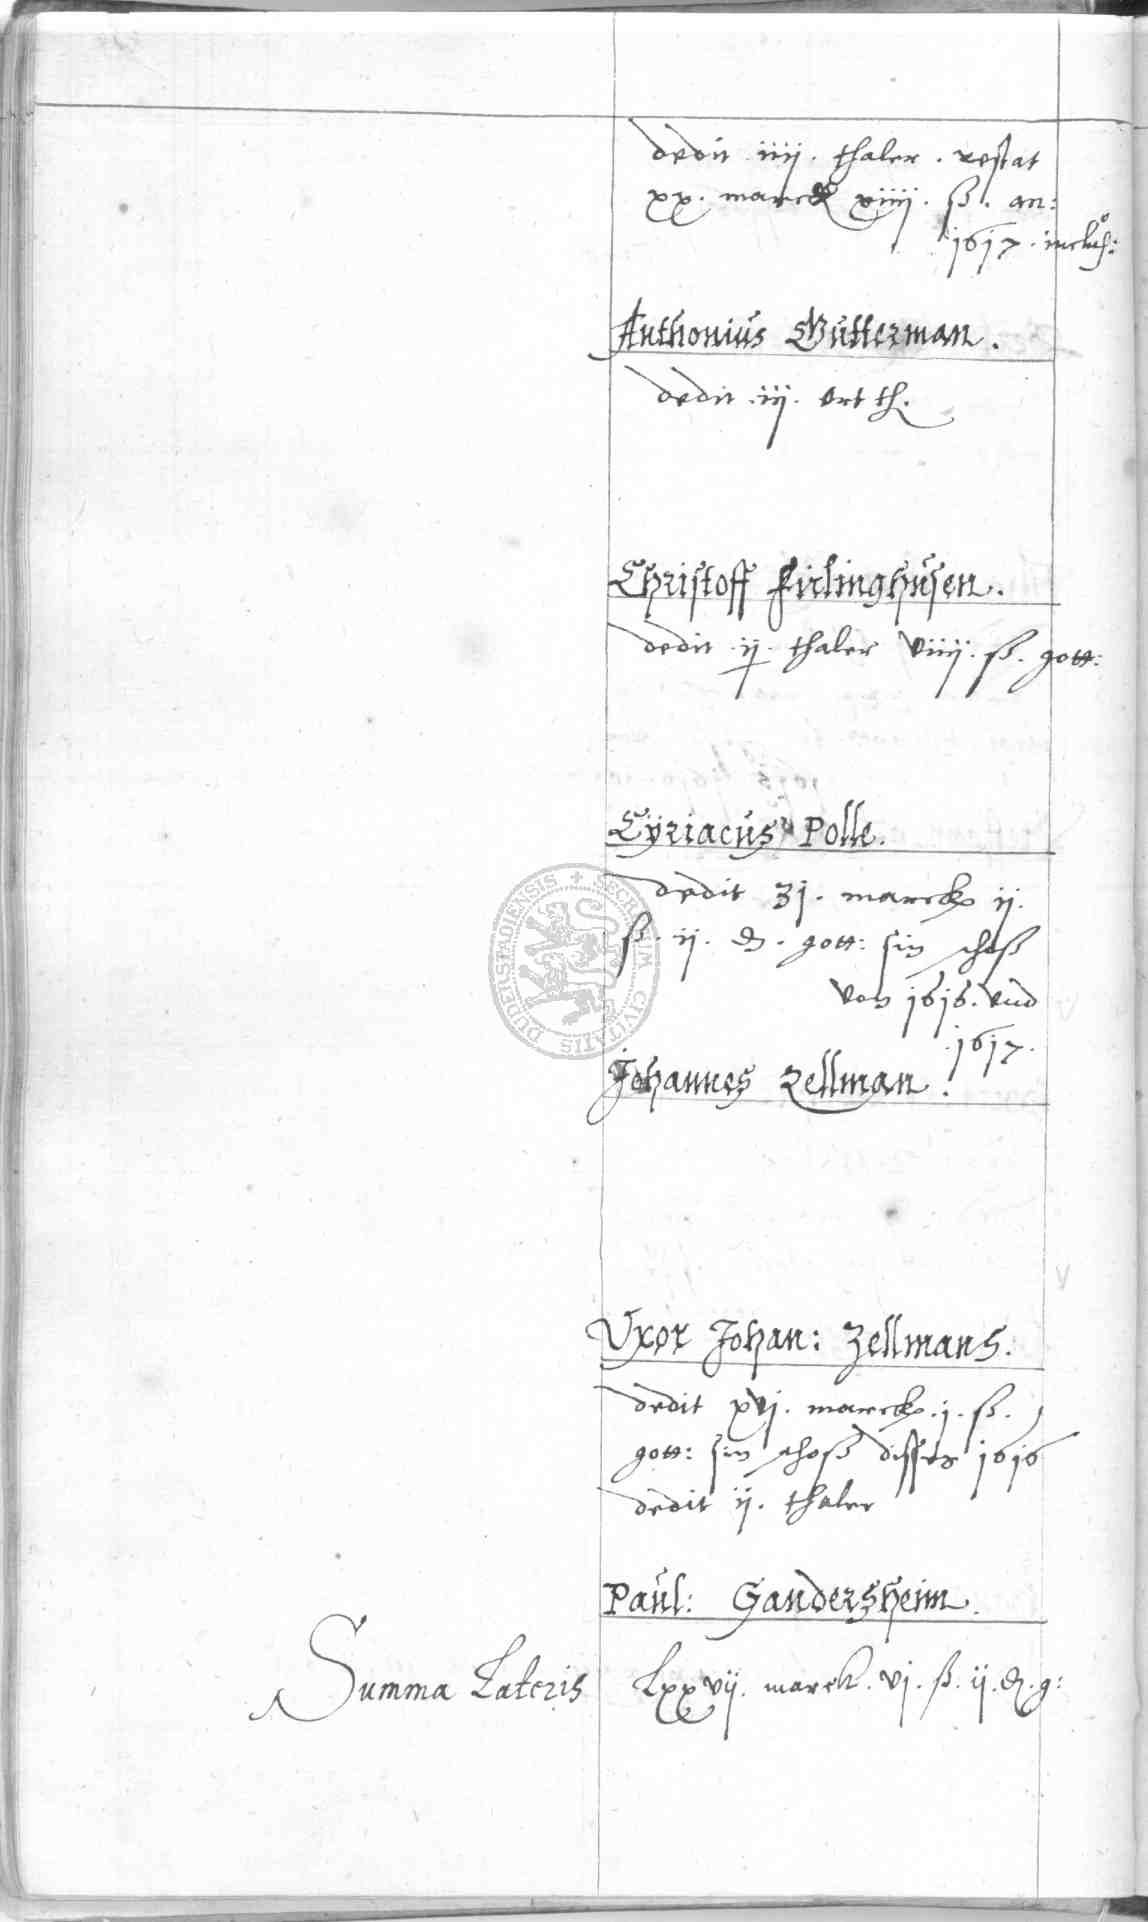 dedit iiij. thaler. restat
xx. marck xiiij. ß. an:
1617. inclus:
Anthonius Gutterman.
dedit .iij. ort th.
Christoff Firlinghusen.
dedit .ij. thaler viiij. ß. gott:
Cÿriacus Polle.
dedit 31. marck ij.
ß. ij. d. gott: sin schoß
von 1616. vnd
1617.
Johannes Zellman.
Vxor Johan: Zellmans.
dedit xvj. marck. j. ß.
gott: sin schoß disses 1616
dedit ij. thaler
Paul: Gandersheim.
Summa Lateris Lxxvij. marck. vj. ß. ij. d. g:
SECRETUM CIVITATIS DUDERSTADIENSIS